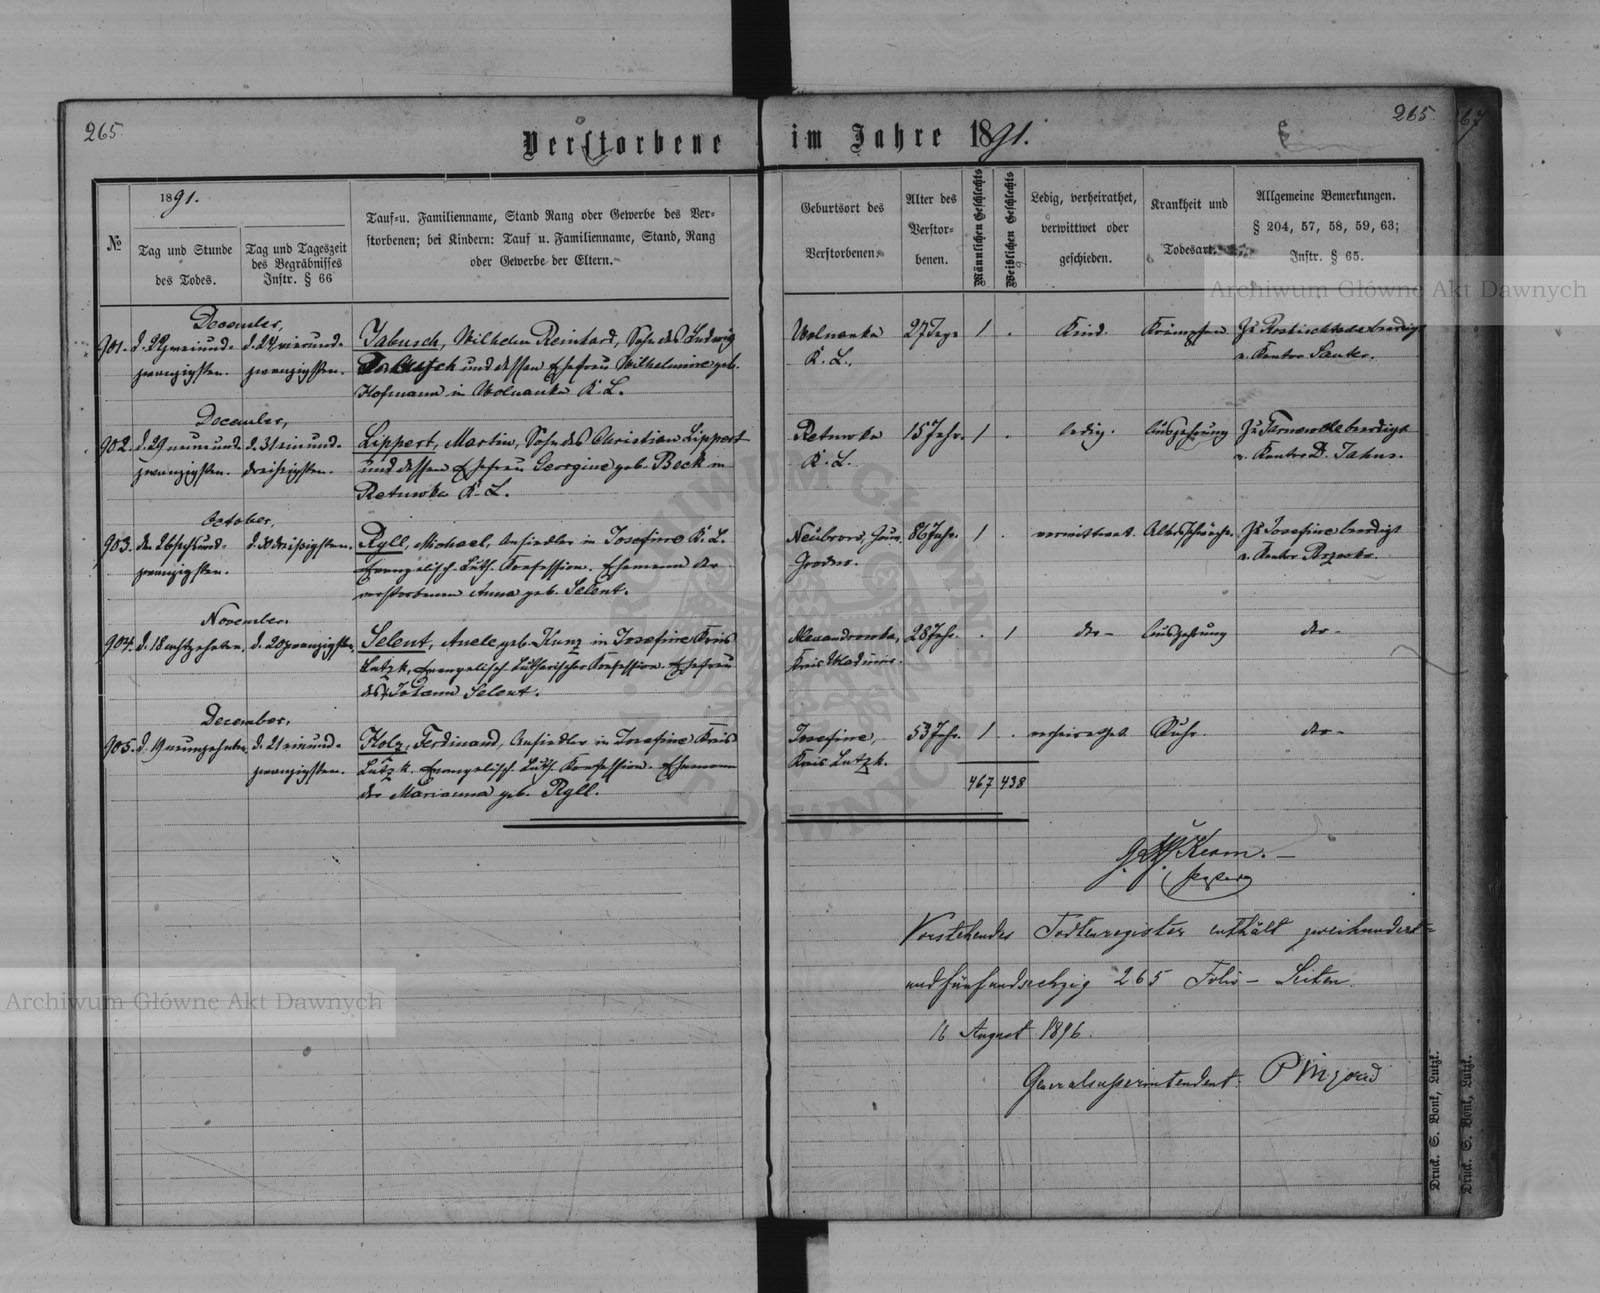 265
265
67
Verstorbene im Jahre 1891.
№
1891.
Tag und Stunde
des Todes.
Tag und Tageszeit
des Begräbnisses
Instr. § 66
Tauf=u. Familienname, Stand Rang oder Gewerbe des Ver=
storbenen; bei Kindern: Tauf u. Familienname, Stand, Rang
oder Gewerbe der Eltern.
Geburtsort des
Verstorbenen.
Alter des
Verstor=
benen.
Männlichen Geschlechts
Weiblichen Geschlechts
Ledig, verheirathet,
verwittwet oder
geschieden.
Krankheit und
Todesart.
Allgemeine Bemerkungen.
§ 204, 57, 58, 59, 63;
Instr. § 65.
Archiwum Główne Akt Dawnych
December,
901.
zwanzigsten.
d. 24 vierund-
zwanzigsten.
Jabusch, Wilhelm Reinhard, Sohn des Ludwig
und dessen Ehefrau Wilhelmine geb.
Hofmann in Wolnanka K. L.
Wolnanka
K. L.
27 Tage
1
Kind.
Krämpfen
beerdigt
v. Kantor
December,
902.
d. 29 neunund-
zwanzigsten.
d. 31 einund-
dreißigsten.
Lippert, Martin, Sohn des Christian Lippert
und dessen Ehefrau Georgine geb. Beck in
Retuwka K. L.
Retuwka
K. L.
15 Jahr.
1
ledig.
Auszehrung
beerdigt
v. Kantor D. Jahns.
October,
903.
den 26 sechsund-
zwanzigsten.
d. 30 dreißigsten.
Ryll, Michael, Ansiedler in Josefine K. L.
Evangelisch-Luth. Konfession. Ehemann der
verstorbenen Anna geb. Selent.
Neubrow, Gouv.
Grodno.
86 Jahr.
1
verwittwet.
Altersschwäche.
Zu Josefine beerdigt
v. Kantor
November.
904.
d. 18 achtzehnten.
d. 20 zwanzigsten.
Selent, geb. Kunz in Josefine Kreis
Lutzk, Evangelisch Lutherischer Konfession. Ehefrau
des Johann Selent.
Alexandrowka,
Kreis Wladimir.
28 Jahr.
1
dto-
Auszehrung
dto-
December.
905.
d. 19 neunzehnten.
d. 21 einund-
zwanzigsten.
Holz, Ferdinand, Ansiedler in Josefine Kreis
Lutzk. Evangelisch-Luth. Konfession. Ehemann
der Marianna geb. Ryll.
Josefine,
Kreis Lutzk.
53 Jahr.
1
verheirathet.
Ruhr.
dto-
467
438
Kerm.
Vorstehendes Todtenregister enthält zweihundert=
und fünfundsechzig 265 Folio- Seiten.
16 August 1896.
Generalsuperintendent:
Archiwum Główne Akt Dawnych
Druck. S. Bonk, Lutzk.
Druck. S. Bonk, Lutzk.
ARCHIWUM GŁÓWNE AKT DAWNYCH